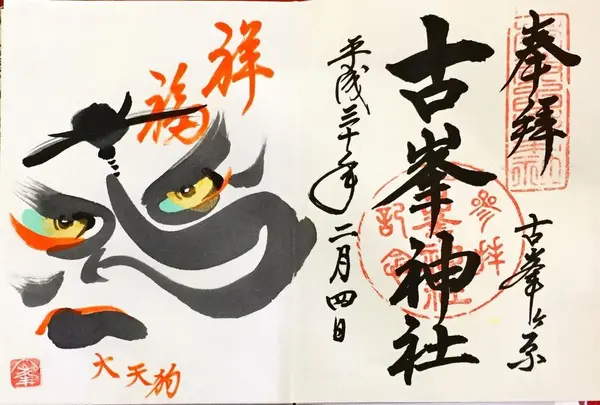 奉拝
古峯ヶ原
古峯神社
参拝
記念
平成三十年二月四日
祥福
大天狗
峯